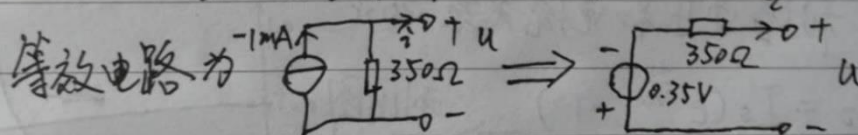 等效电路为 -1mA i + u 350Ω - ⇒ - 0.35V + 350Ω i + u -